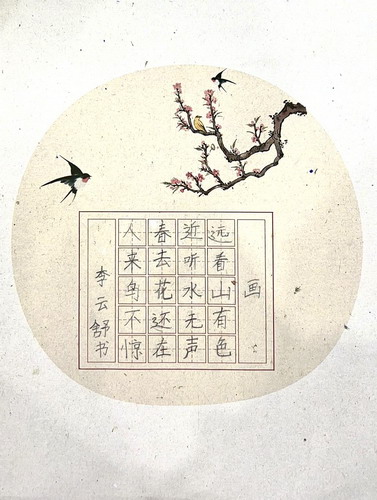 画
远看山有色
近听水无声
春去花还在
人来鸟不惊
李云舒书